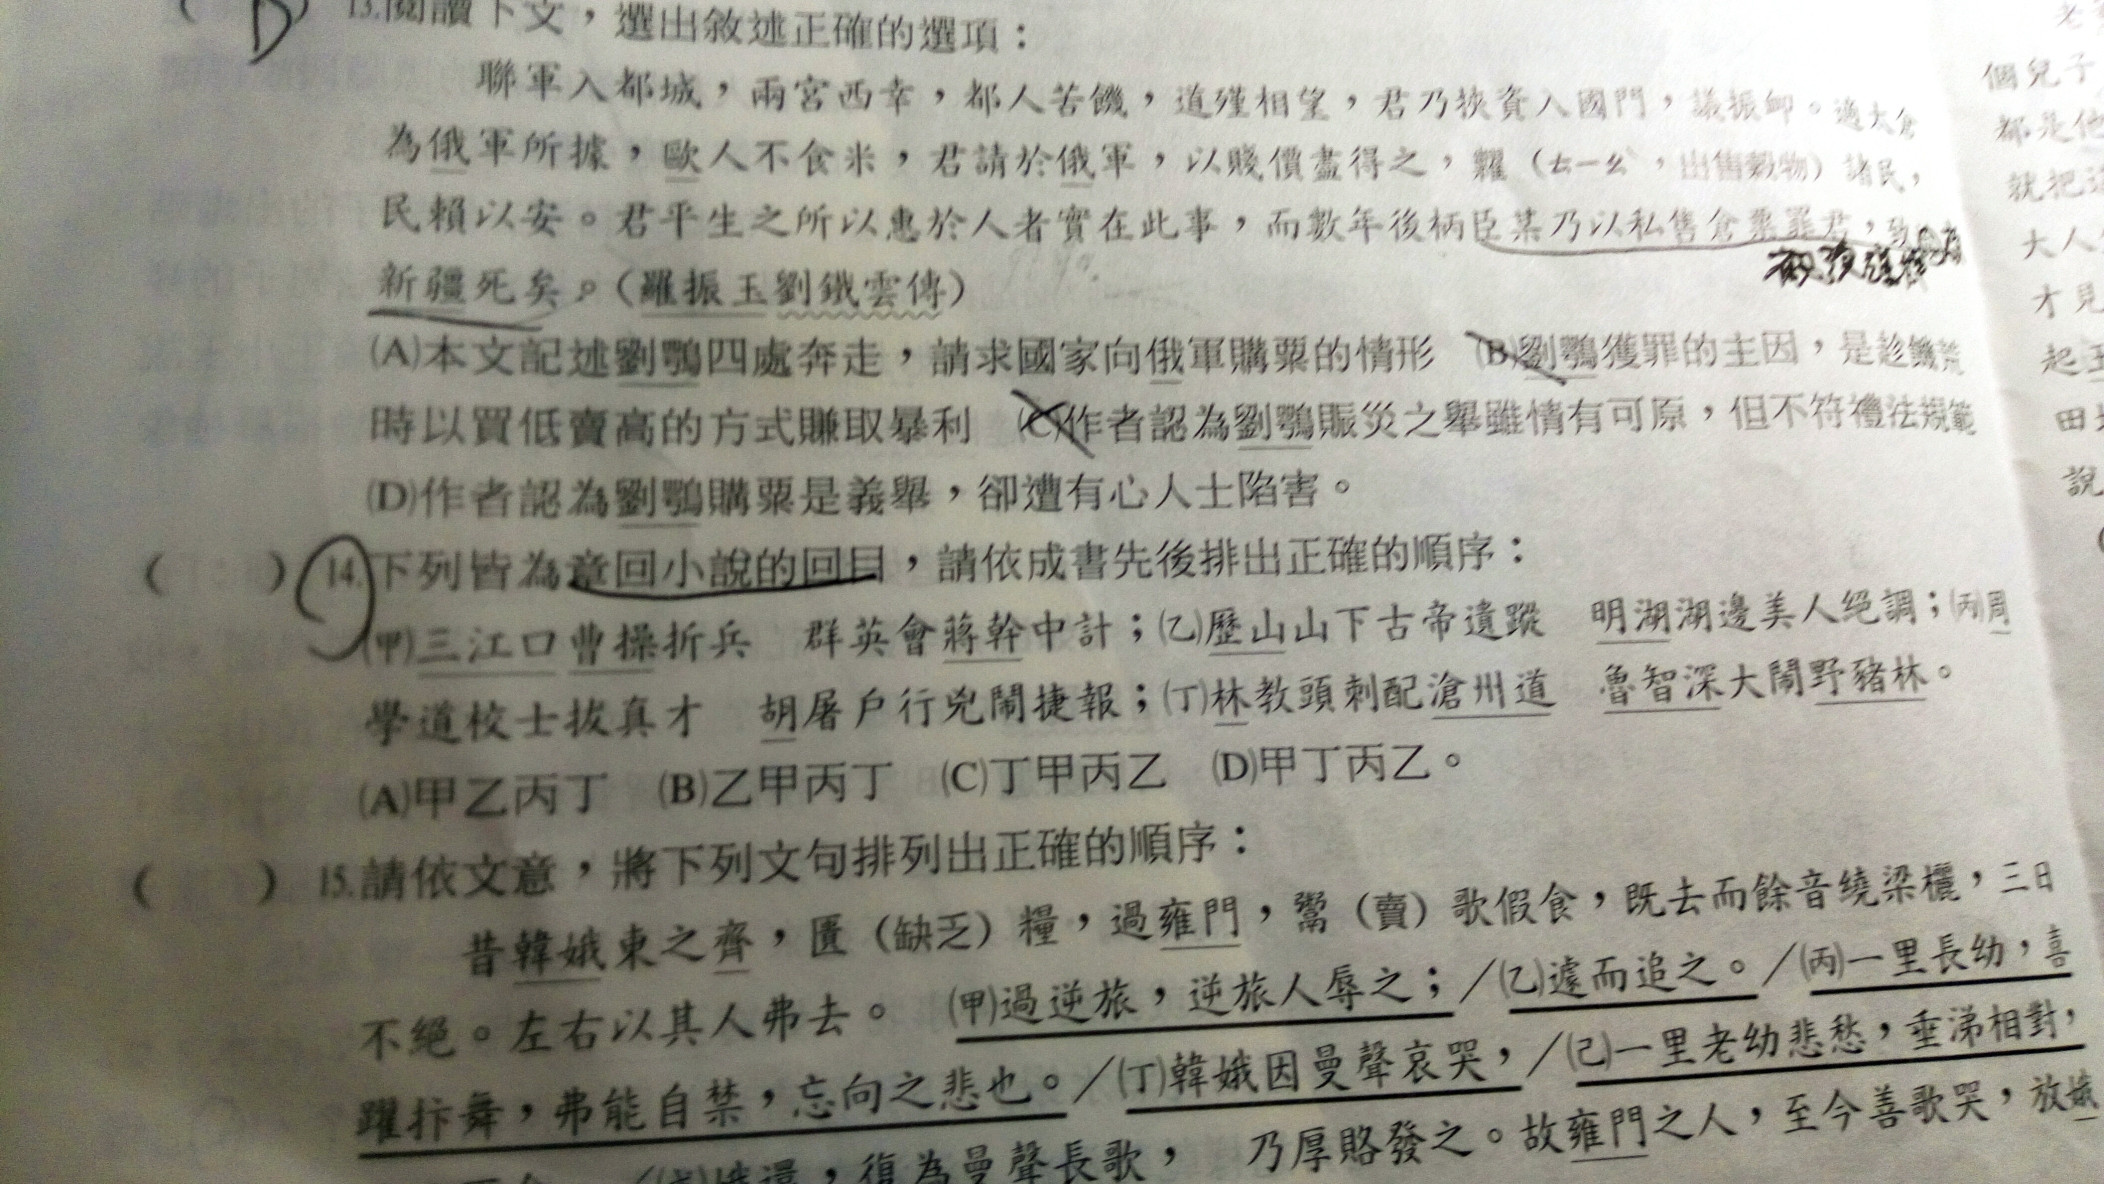 13.閱讀下文，選出敘述正確的選項：
聯軍入都城，兩宮西幸，都人苦饑，道殣相望，君乃挾資入國門，議振卹。適大倉
為俄軍所據，歐人不食米，君請於俄軍，以賤價盡得之，糶（ㄊㄧㄠˋ，出售穀物）諸民，
民賴以安。君平生之所以惠於人者實在此事，而數年後柄臣某乃以私售倉粟罪君，
新疆死矣。（羅振玉劉鐵雲傳）
(A)本文記述劉鶚四處奔走，請求國家向俄軍購粟的情形　(B)劉鶚獲罪的主因，是趁饑荒
時以買低賣高的方式賺取暴利　(C)作者認為劉鶚賑災之舉雖情有可原，但不符禮法規範
(D)作者認為劉鶚購粟是義舉，卻遭有心人士陷害。
（　　）14.下列皆為章回小說的回目，請依成書先後排出正確的順序：
(甲)三江口曹操折兵　群英會蔣幹中計；(乙)歷山山下古帝遺蹤　明湖湖邊美人絕調；(丙)周
學道校士拔真才　胡屠戶行兇鬧捷報；(丁)林教頭刺配滄州道　魯智深大鬧野豬林。
(A)甲乙丙丁　(B)乙甲丙丁　(C)丁甲丙乙　(D)甲丁丙乙。
（　　）15.請依文意，將下列文句排列出正確的順序：
昔韓娥東之齊，匱（缺乏）糧，過雍門，鬻（賣）歌假食，既去而餘音繞梁欐，三日
不絕。左右以其人弗去。　(甲)過逆旅，逆旅人辱之；／(乙)遽而追之。／(丙)一里長幼，喜
躍抃舞，弗能自禁，忘向之悲也。／(丁)韓娥因曼聲哀哭，／(己)一里老幼悲愁，垂涕相對，
復為曼聲長歌，　乃厚賂發之。故雍門之人，至今善歌哭，放娥
個兒子
都是他
就把這
大人
才見
起
田
說